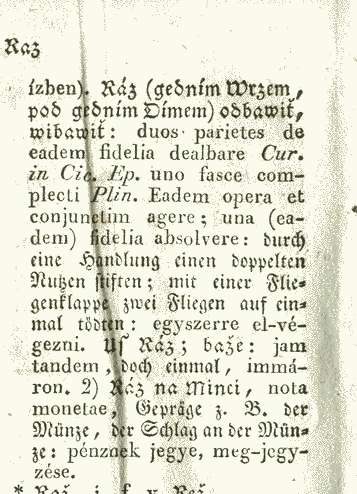 Raz
ízben). Ráz (gedním Wrzem,
pod gedním Dímem) odbawiť,
wibawiť: duos parietes de
eadem fidelia dealbare Cur.
in Cic. Ep. uno fasce com-
plecti Plin. Eadem opera et
conjunctim agere; una (ea-
dem) fidelia absolvere: durch
eine Handlung einen doppelten
Nutzen stiften; mit einer Flie-
genklappe zwei Fliegen auf ein-
mal tödten: egyszerre el-vé-
gezni. Us Ráz; baže: jam
tandem, doch einmal, immá-
ron. 2) Ráz na Minci, nota
monetae, Gepräge z. B. der
Münze, der Schlag an der Mün-
ze: pénznek jegye, meg-jegy-
zése.